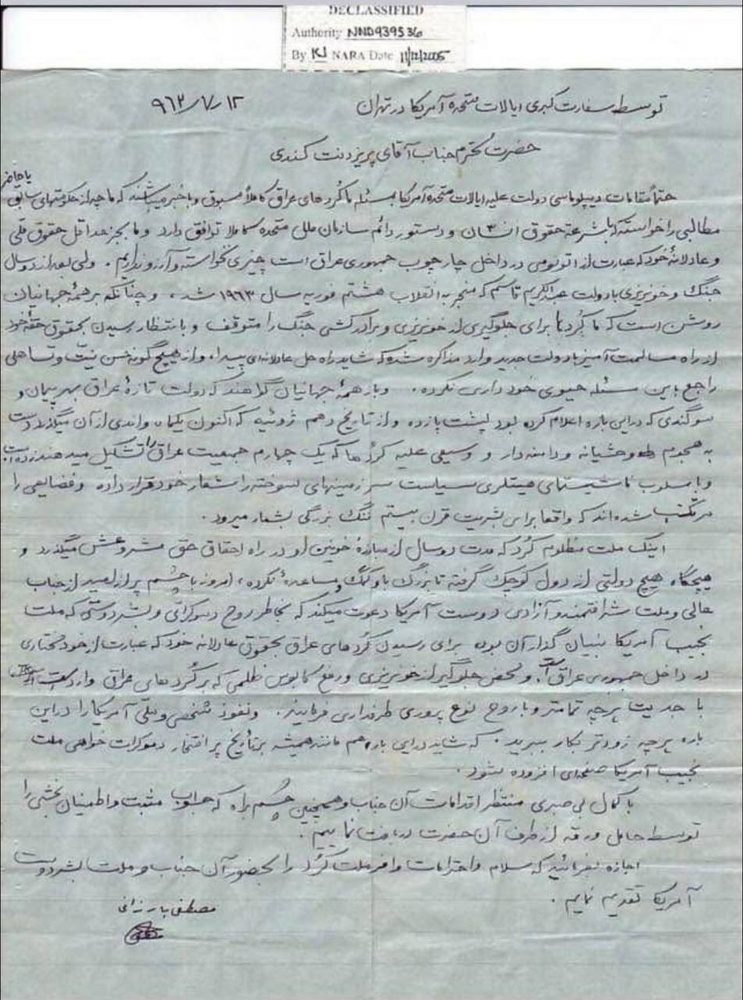 DECLASSIFIED
Authority NND939536
By KJ NARA Date 11/12/2005
توسط سفارت کبری ایالات متحده آمریکا در تهران
۹۶۳/۷/۱۲
حضرت محترم جناب آقای پریزدنت کندی
حتماً مقامات دیپلوماسی دولت علیه ایالات متحده آمریکا بمسئله ما کُردهای عراق کاملاً مسبوق و باخبر میباشند که ما چه از حکومتهای سابق یا حاضر
مطالبی را خواسته که با شرعة حقوق انسان و دستور دائم سازمان ملل متحده کاملا توافق دارد و ما بجز حداقل حقوق ملی
و عادلانهٔ خود که عبارت از اتونومی در داخل چارچوب جمهوری عراق است چیزی نخواسته و آرزو نداریم . ولی بعد از دو سال
جنگ و خونریزی با دولت عبدالکریم قاسم که منجر به انقلاب هشتم فوریه سال ۱۹۶۳ شد ، و چنانکه بر همهٔ جهانیان
روشن است که ما کُردها برای جلوگیری از خونریزی و برادرکشی جنگ را متوقف و با انتظار رسیدن بحقوق حقهٔ خود
از راه مسالمت آمیز با دولت جدید وارد مذاکره شده که شاید راه حل عادلانه‌ای پیدا ، و از هیچ گونه حسن نیّت و تساهلی
راجع باین مسئله حیوی خودداری نکرده . و باز همهٔ جهانیان گواهند که دولت تازهٔ عراق بهر پیمان و
سوگندی که در این باره اعلام کرده بود پشت پا زده و از تاریخ دهم ژوئیه که اکنون یکماه و اندی از آن میگذرد دست
به هجوم وحشیانه و دامنه‌دار و وسیعی علیه کردها که یک چهارم جمعیت عراق را تشکیل میدهند زده است
و باسلوب فاشیستهای هیتلری سیاست سرزمینهای سوخته را شعار خود قرار داده و فضایعی را
مرتکب شده‌اند که واقعا برای بشریت قرن بیستم ننگ بزرگی بشمار میرود .
اینک ملت مظلوم کُرد که مدت دو سال از مبارزهٔ خونین او در راه احقاق حق مشروعش میگذرد و
هیچگاه هیچ دولتی از دول کوچک گرفته تا بزرگ باو کمک و مساعدهٔ نکرده ، امروز با چشم پر از امید از جناب
عالی و ملت شرافتمند و آزادی دوست آمریکا دعوت میکند که بخاطر روح دموکراتی و بشر دوستی که ملت
نجیب آمریکا بنیان گذار آن بوده برای رسیدن کُردهای عراق بحقوق عادلانه خود که عبارت از خودمختاری
در داخل جمهوری عراق است ، و بمحض جلوگیری از خونریزی و رفع کابوس ظلمی که بر کُردهای عراق وارد است
با جدیت هرچه تمامتر و با روح نوع پروری طرفداری فرمایند . و نفوذ شخصی و ملّی آمریکا را در این
باره هرچه زودتر بکار ببرید . که شاید در این باره هم مانند همیشه بتأریخ پر افتخار دموکرات خواهی ملت
نجیب آمریکا صفحه‌ای افزوده شود .
با کمال بی صبری منتظر اقدامات آن جناب و همچنین چشم براه که جواب مثبت و اطمینان بخشی را
توسط حامل ورقه از طرف آن حضرت دریافت نماییم .
اجازه بفرمائید که سلام و احترامات وافر ملت کُرد را بحضور آن جناب و ملت بشر دوست
آمریکا تقدیم نمایم .
مصطفی بارزانی